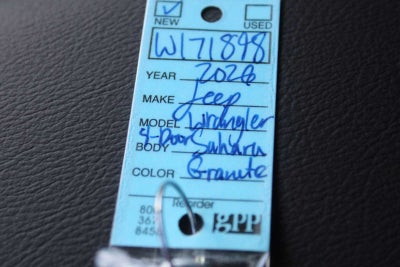 NEW USED
W171898
YEAR 2026
MAKE Jeep
MODEL Wrangler
4-Door
BODY Sahara
COLOR Granite
Reorder
800
367
8458
gpp